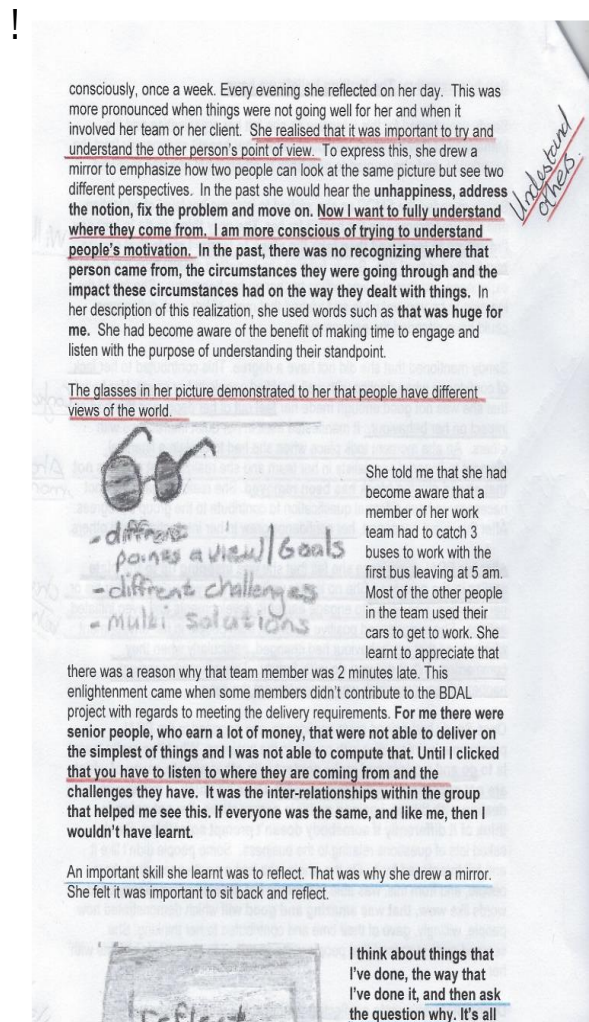 !
consciously, once a week. Every evening she reflected on her day. This was
more pronounced when things were not going well for her and when it
involved her team or her client. She realised that it was important to try and
understand the other person's point of view. To express this, she drew a
mirror to emphasize how two people can look at the same picture but see two
different perspectives. In the past she would hear the unhappiness, address
the notion, fix the problem and move on. Now I want to fully understand
where they come from. I am more conscious of trying to understand
people's motivation. In the past, there was no recognizing where that
person came from, the circumstances they were going through and the
impact these circumstances had on the way they dealt with things. In
her description of this realization, she used words such as that was huge for
me. She had become aware of the benefit of making time to engage and
listen with the purpose of understanding their standpoint.
Undestand
others.
The glasses in her picture demonstrated to her that people have different
views of the world.
- diffrent
points a view/Goals
- diffrent challenges
- multi solutions
She told me that she had
become aware that a
member of her work
team had to catch 3
buses to work with the
first bus leaving at 5 am.
Most of the other people
in the team used their
cars to get to work. She
learnt to appreciate that
there was a reason why that team member was 2 minutes late. This
enlightenment came when some members didn't contribute to the BDAL
project with regards to meeting the delivery requirements. For me there were
senior people, who earn a lot of money, that were not able to deliver on
the simplest of things and I was not able to compute that. Until I clicked
that you have to listen to where they are coming from and the
challenges they have. It was the inter-relationships within the group
that helped me see this. If everyone was the same, and like me, then I
wouldn't have learnt.
An important skill she learnt was to reflect. That was why she drew a mirror.
She felt it was important to sit back and reflect.
reflect
I think about things that
I've done, the way that
I've done it, and then ask
the question why. It's all